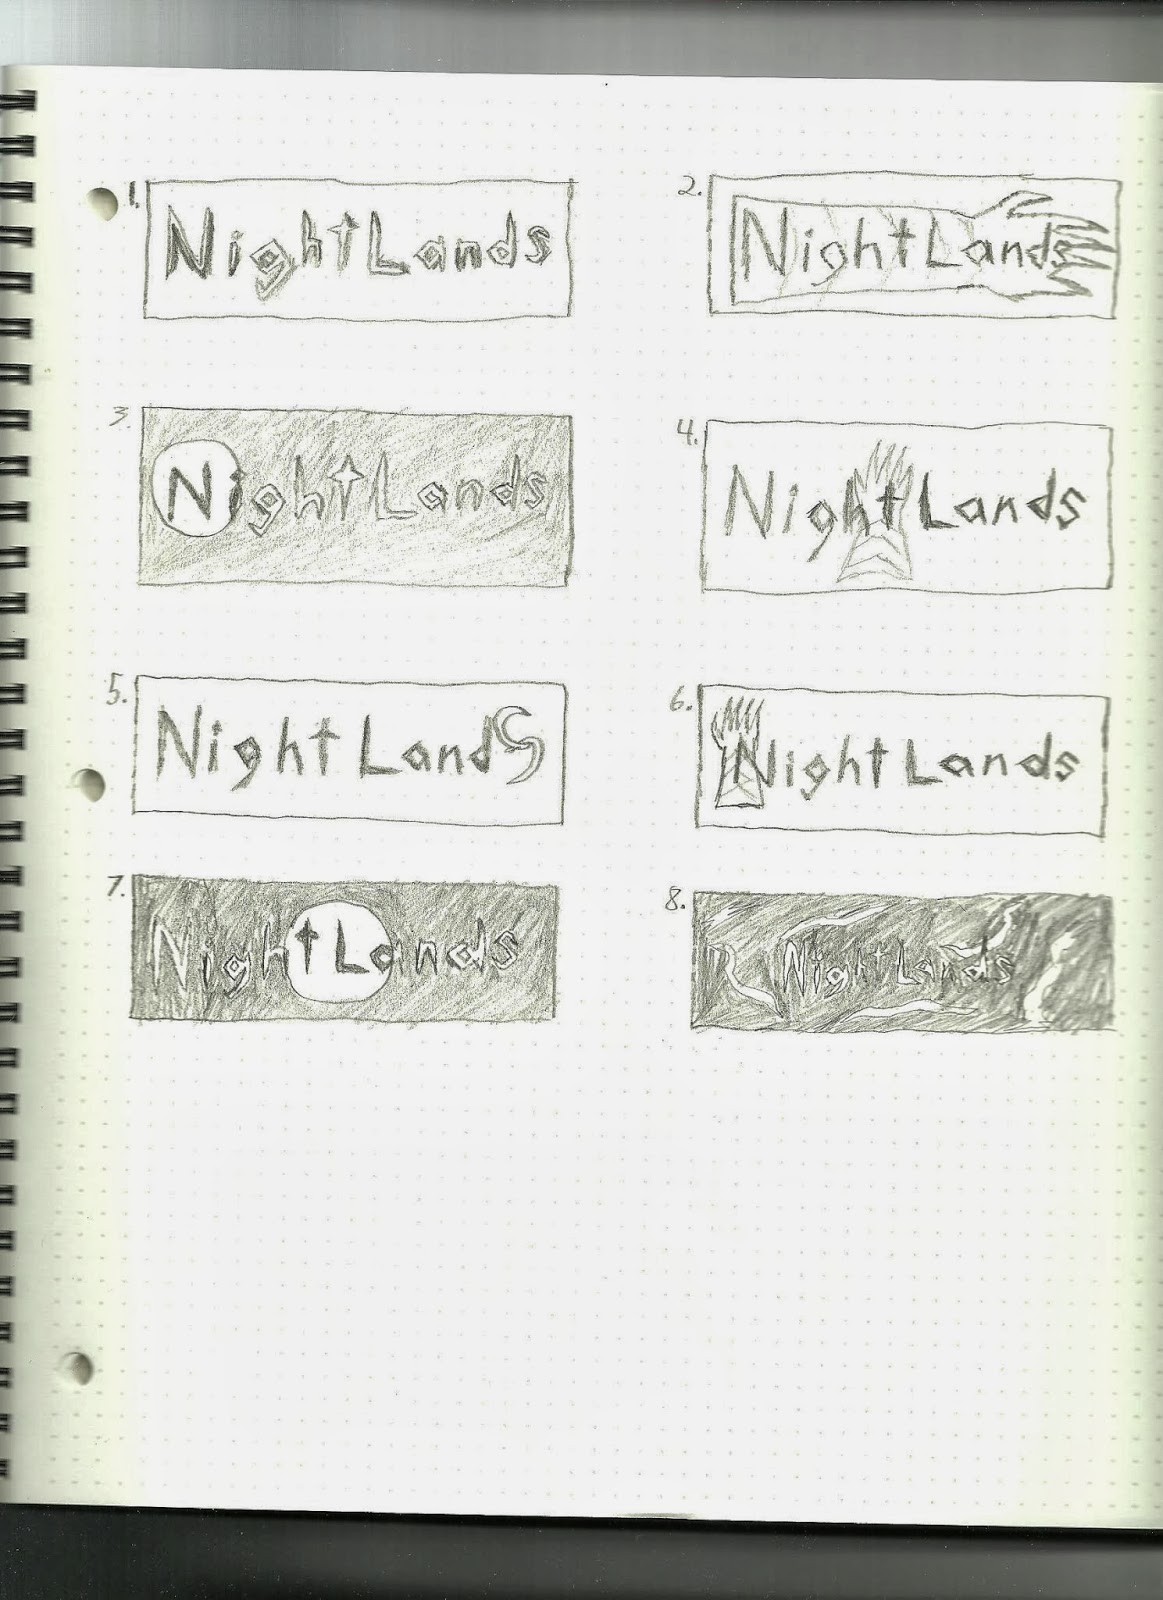 1. NightLands
2. NightLands
3. NightLands
4. Night Lands
5. Night Lands
6. Night Lands
7. NightLands
8. NightLands